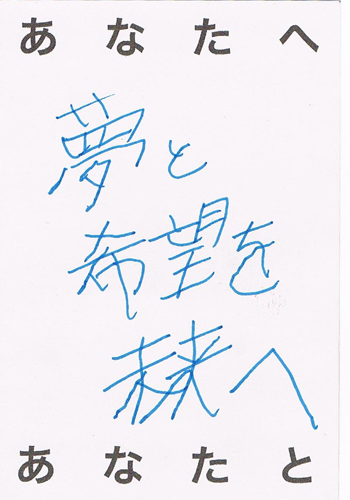 あなたへ
夢と
希望を
未来へ
あなたと